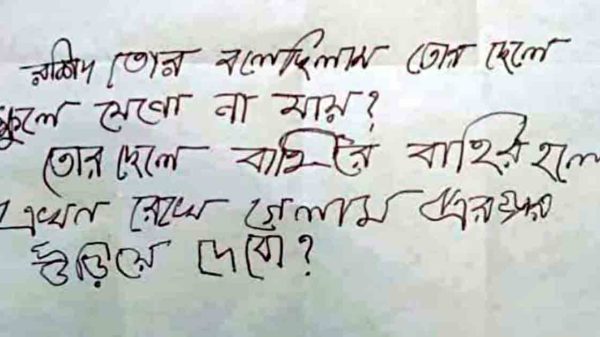 রশিদ তোর বলেছিলাম তোর ছেলে
স্কুলে যেণো না যায়?
তোর ছেলে বাহিরে বাহির হলে
এখন রেখে গেলাম এরপর
গুঁড়িয়ে দেবো?